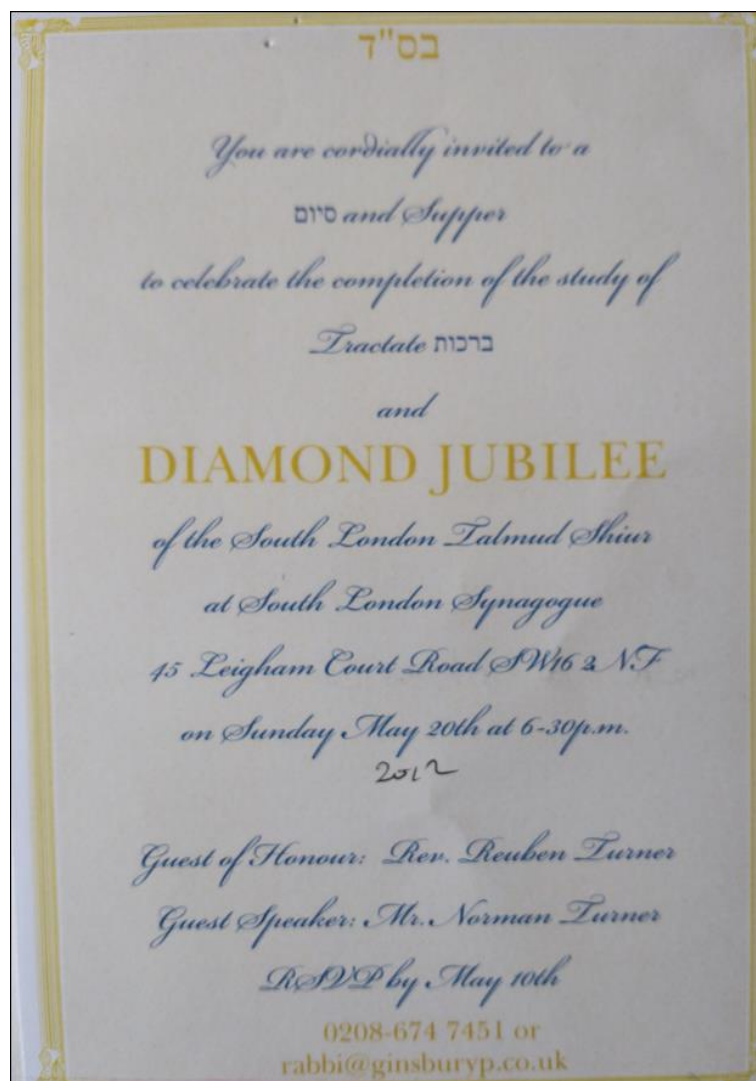 בס"ד
You are cordially invited to a
סיום and Supper
to celebrate the completion of the study of
Tractate ברכות
and
DIAMOND JUBILEE
of the South London Talmud Shiur
at South London Synagogue
45 Leigham Court Road SW16 2NF
on Sunday May 20th at 6-30p.m.
2012
Guest of Honour: Rev. Reuben Turner
Guest Speaker: Mr. Norman Turner
RSVP by May 10th
0208-674 7451 or
rabbi@ginsburyp.co.uk